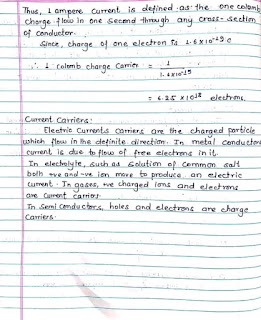 Thus, 1 ampere current is defined as the one colomb
charge flow in one second through any cross-section
of conductor.
Since, charge of one electron is 1.6×10⁻¹⁹ C
∴ 1 colomb charge Carrier = 1 / 1.6×10⁻¹⁹
= 6.25 × 10¹⁸ electrons.
Current Carriers:
Electric Currents carriers are the charged particle
which flow in the definite direction. In metal conductors
current is due to flow of free electrons in it.
In electrolyte, such as solution of common salt
both +ve and -ve ion move to produce an electric
current. In gases, +ve charged ions and electrons
are current carriors.
In Semi Conductors, holes and electrons are charge
Carriers.